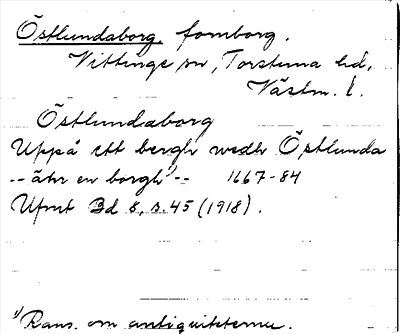 Östlundaborg, fornborg.
Vittinge sn, Torstuna hd,
Västm. l.
Östlundaborg
Uppå ett bergh wedh Östlunda
-- ähr en borgh¹⁾ -- 1667-84
Ufmt Bd 8, s. 45 (1918).
¹⁾ Rans. om antiquiteterne.